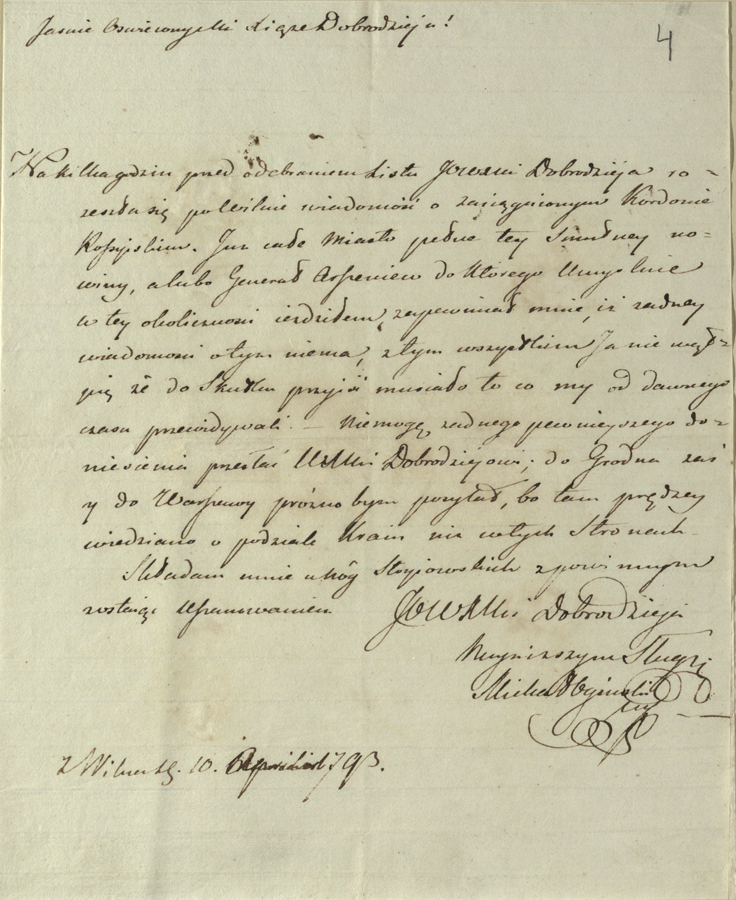 Jaśnie Oświecony Mci Xiąże Dobrodzieju!
4
Na kilka godzin przed odebraniem Listu JOWXMci Dobrodzieja ro-
zeszła się po Wilnie wiadomość o zaciągnionym Kordonie
Rossyiskim. Już całe Miasto pełne tey smutney no=
winy, a lubo Generał Arseniew do którego umyslnie
w tey okoliczności iezdziłem, zapewniał mnie, iż żadney
wiadomości o tym niema, z tym wszystkim Ja nie wąt=
pię że do Skutku przyjść musiało to co my od dawnego
czasu przewidywali. — Niemogę żadnego pewnieyszego do=
niesienia przesłać WXMci Dobrodziejowi; do Grodna zaś
y do Warszawy próżno bym posyłał, bo tam prędzey
wiedziano o podziale Kraiu niż w tych Stronach.
Składam mnie u nóg Xsiążęcych z powinnym
zostaiąc uszanowaniem JOWXMci Dobrodzieja
Nayniższym Sługą
Michał Ogiński
z Wilna d. 10. Aprilis 1793.